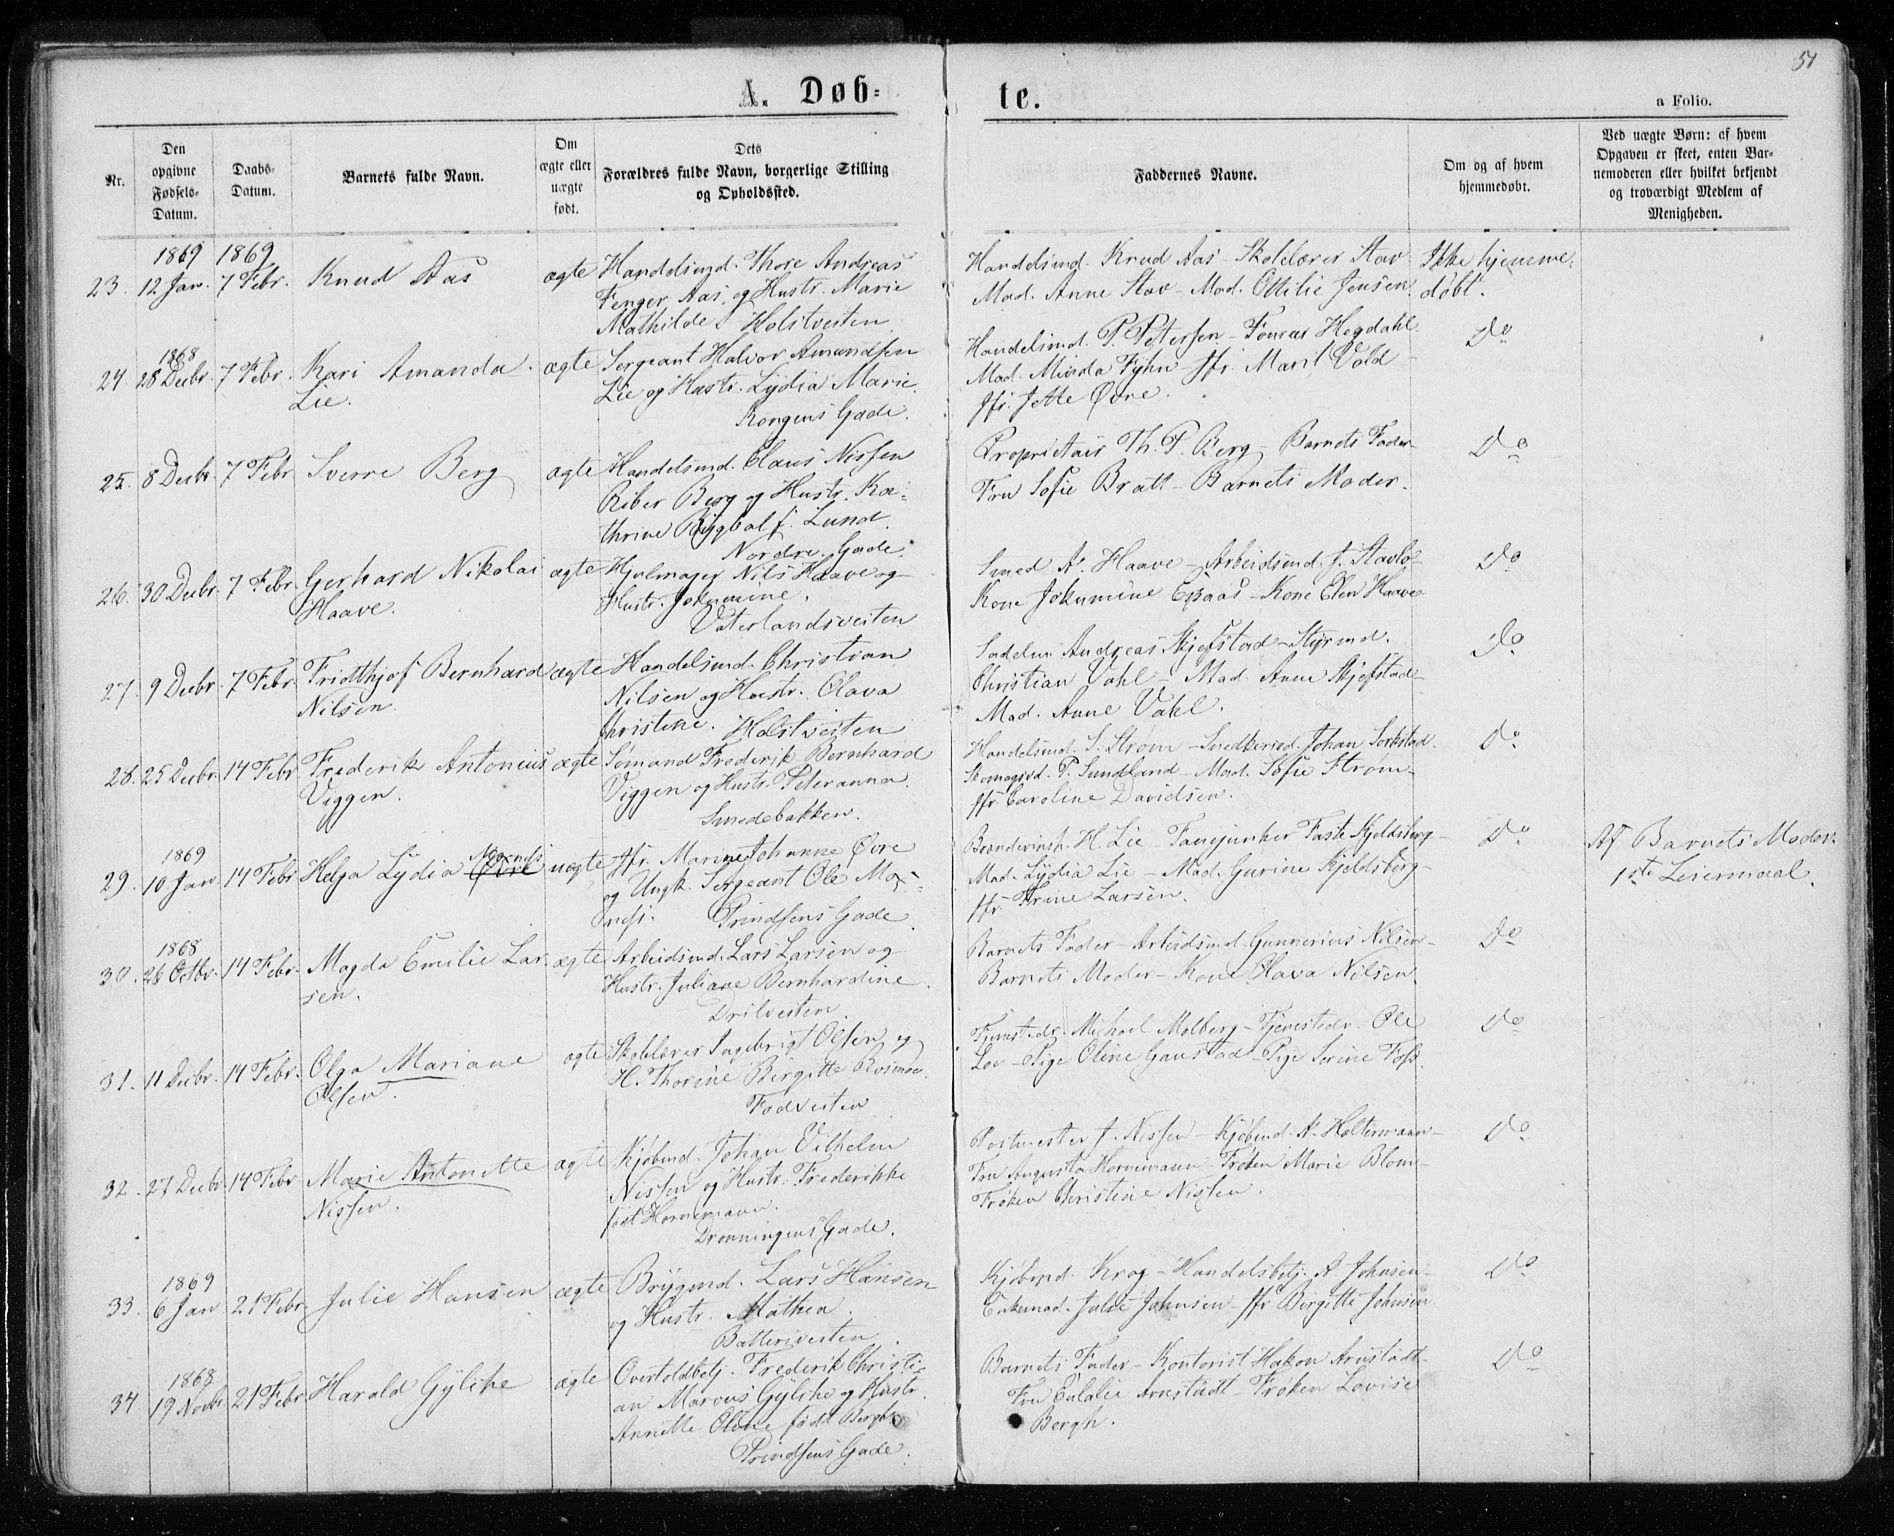 51
A. Døb- te.
a Folio.
Nr.
Den opgivne Fødsels-Datum.
Daabs-Datum.
Barnets fulde Navn.
Om ægte eller uægte født.
Dets Forældres fulde Navn, borgerlige Stilling og Opholdssted.
Faddernes Navne.
Om og af hvem hjemmedøbt.
Ved uægte Børn: af hvem Opgaven er skeet, enten Barnemoderen eller hvilket bekjendt og troværdigt Medlem af Menigheden.
1869 1869
23. 12 Jan. 7 Febr. Knud Aas ægte Handelsmd. Thore Andreas
Fenger Aas, og Hustr. Marie
Mathilde Holstveiten
Handelsmd. Knud Aas - Skolelærer Stav
Mad. Anne Stav - Mad. Ottilie Jensen.
Ikke hjemme-
døbt.
1868
24 28 Decbr. 7 Febr. Kari Amanda ægte Sergeant Halvor Amundsen
Lie.
Lie og Hustr. Lydia Marie.
Kongens Gade.
Handelsmd. P. Petersen - Hegdahl
Mad. Minda Fyhn - Jfr. Marit Vold
Jfr. Jette Øvre.
Do
25. 8 Decbr. 7 Febr. Sverre Berg ægte Handelsmd. Claus Nissen
Riber Berg og Hustr. Ka-
thrine f. Lund.
Nordre Gade.
Proprietair Th. P. Berg - Barnets Fader
Fru Sofie Bratt - Barnets Moder.
Do
26. 30 Decbr. 7 Febr. Gerhard Nikolai ægte Hjulmager Nils Haave og
Haave.
Hustr. Jokumine.
Vaterlandsveiten
Smed A. Haave - Arbeidsmd. J.
Kone Jokumine Espaas - Kone Elen Haave
Do
27. 9 Decbr. 7 Febr. Fridthjof Bernhard ægte Handelsmd. Christian
Nilsen.
Nilsen og Hustr. Olava
Christine. Holstveiten
Sadelm. Andreas Skjefstad - Styrmd.
Christian Vahl - Mad. Anne Skjefstad
Mad. Anne Vahl.
Do
28. 25 Decbr. 14 Febr. Frederik Antonius ægte Sømand Frederik Bernhard
Viggen.
Viggen og Hustr. Peteranna.
Smedebakken.
Handelsmd. S. Strøm - Snedkersvd. Johan Sorkstad
Skomagsvd. P. Sundland - Mad. Sofie Strøm
Jfr. Caroline Davidsen.
Do
1869
29. 10 Jan 14 Febr Helga Lydia Øvre Magnesi uægte Jfr. Marine Johanne Øvre
og Ungk. Sergeant Ole Mag-
nesi. Prindsens Gade.
Brændevinsh. H. Lie - Fanejunker Faste Kjeldsberg
Mad. Lydia Lie - Mad. Gurine Kjeldsberg
Jfr. Trine Larsen.
Do
Af Barnets Moder.
1ste Leiermaal.
1868
30. 26 Octbr. 14 Febr. Magda Emilie Lar- ægte Arbeidsmd. Lars Larsen og
sen.
Hustr. Juliane Bernhardine.
Drilveiten
Barnets Fader - Arbeidsmd. Gunnerius Nilsen
Barnets Moder - Kone Olava Nilsen.
Do
31. 11 Decbr. 14 Febr. Olga Mariane ægte Skolelærer Ingebrigt Olsen og
Olsen.
H. Thorine Birgitte
Fodveiten
Tjenestedr. Michael Molberg - Tjenestedr. Ole
Loe - Pige Oline Gaustad - Pige Serine Foss.
Do
32. 27 Decbr. 14 Febr. Marie Antonette ægte Kjøbmd. Johan Vilhelm
Nissen.
Nissen og Hustr. Frederikke
født Hornemann.
Dronningens Gade.
Postmester J. Nissen - Kjøbmd. A. Holtermann
Fru Augusta Hornemann - Frøken Marie Blom
Frøken Christine Nissen.
Do
1869
33. 6 Jan 21 Febr. Julie Hansen ægte Brygmd. Lars Hansen
og Hustr. Mathea.
Batteriveiten.
Kjøbmd. Krog - Handelsbetj. A. Johnsen
Enkemad. Julie Johnsen - Jfr. Birgitte Johnsen
Do
1868
34 19 Novbr. 21 Febr. Harald Gylche ægte Overtoldbetj. Frederik Christi-
an Marcus Gylche og Hustr.
Annette Oline født Bergh.
Prindsens Gade.
Barnets Fader - Kontorist Hakon Arnstadt
Fru Eulalie Arnstadt - Frøken Lovise
Bergh.
Do